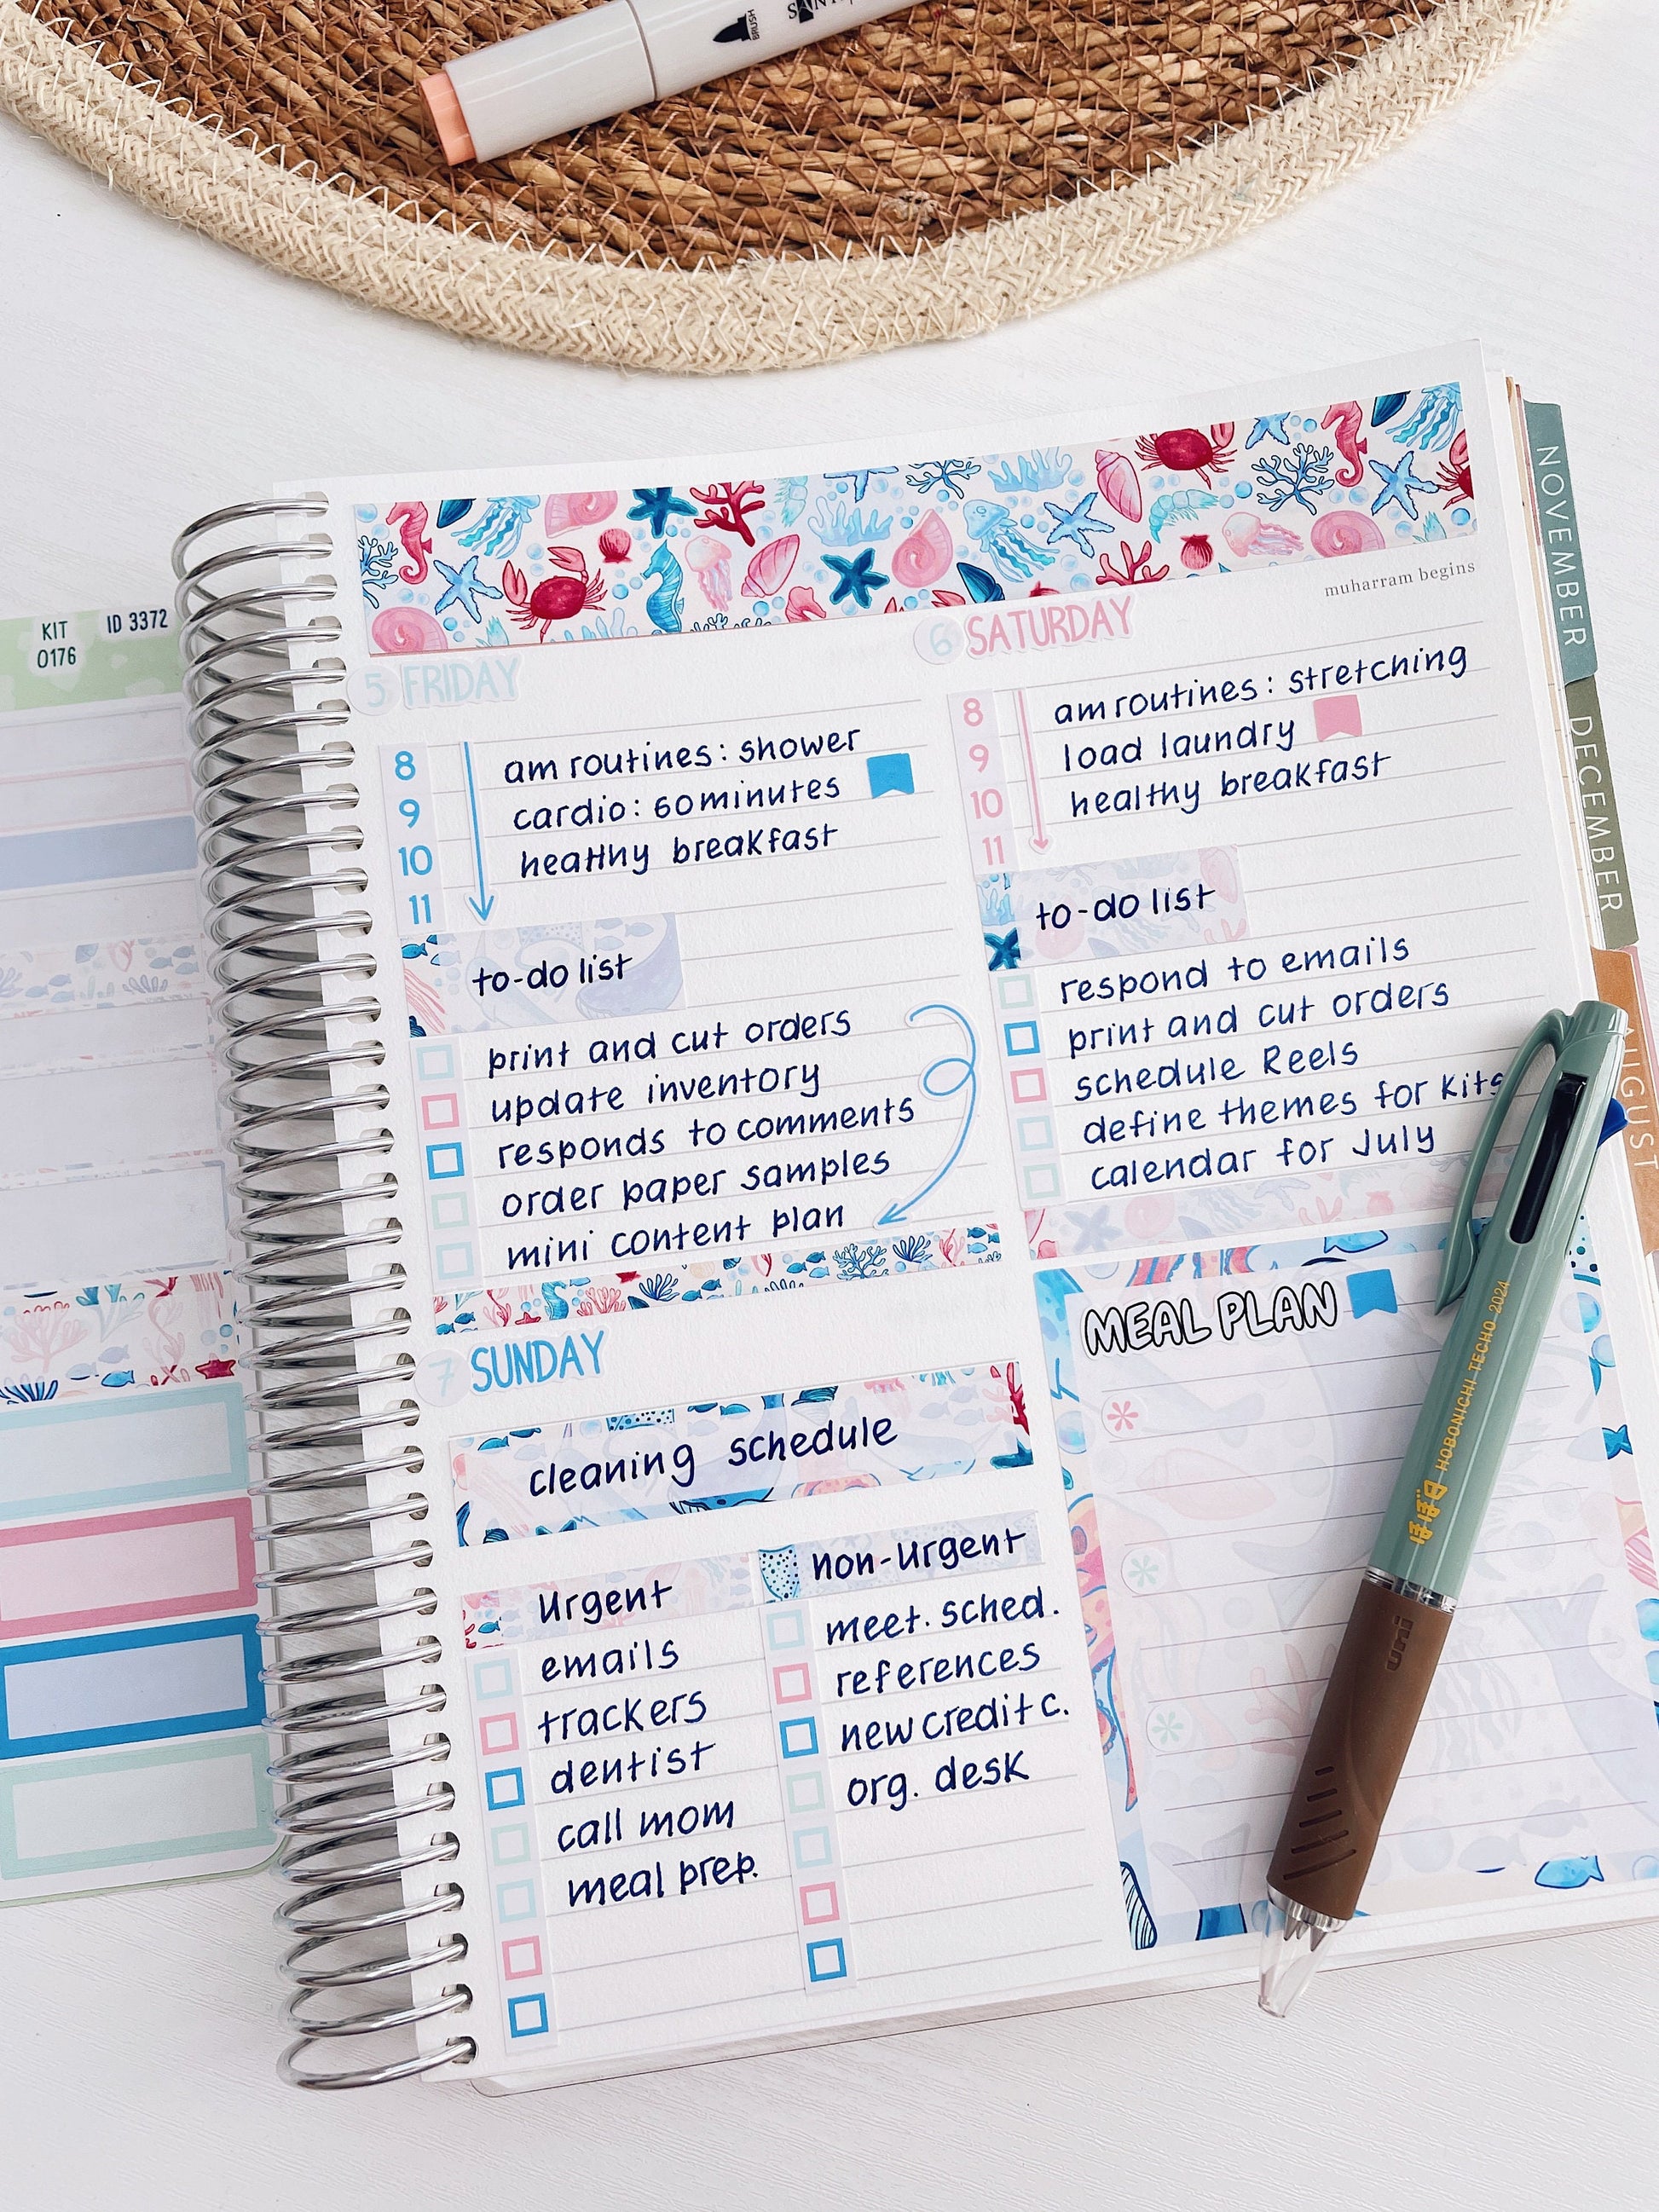 BRUSH
KIT
0176
ID 3372
muharram begins
5 FRIDAY
8
9
10
11
am routines: shower
cardio: 60 minutes
healthy breakfast
to-do list
print and cut orders
update inventory
responds to comments
order paper samples
mini content plan
6 SATURDAY
8
9
10
11
am routines: stretching
load laundry
healthy breakfast
to-do list
respond to emails
print and cut orders
schedule Reels
define themes for kits
calendar for July
7 SUNDAY
cleaning schedule
urgent
emails
trackers
dentist
call mom
meal prep.
non-urgent
meet. sched.
references
new credit c.
org. desk
MEAL PLAN
ほぼ日 HOBONICHI TECHO 2024
uni
NOVEMBER
DECEMBER
AUGUST